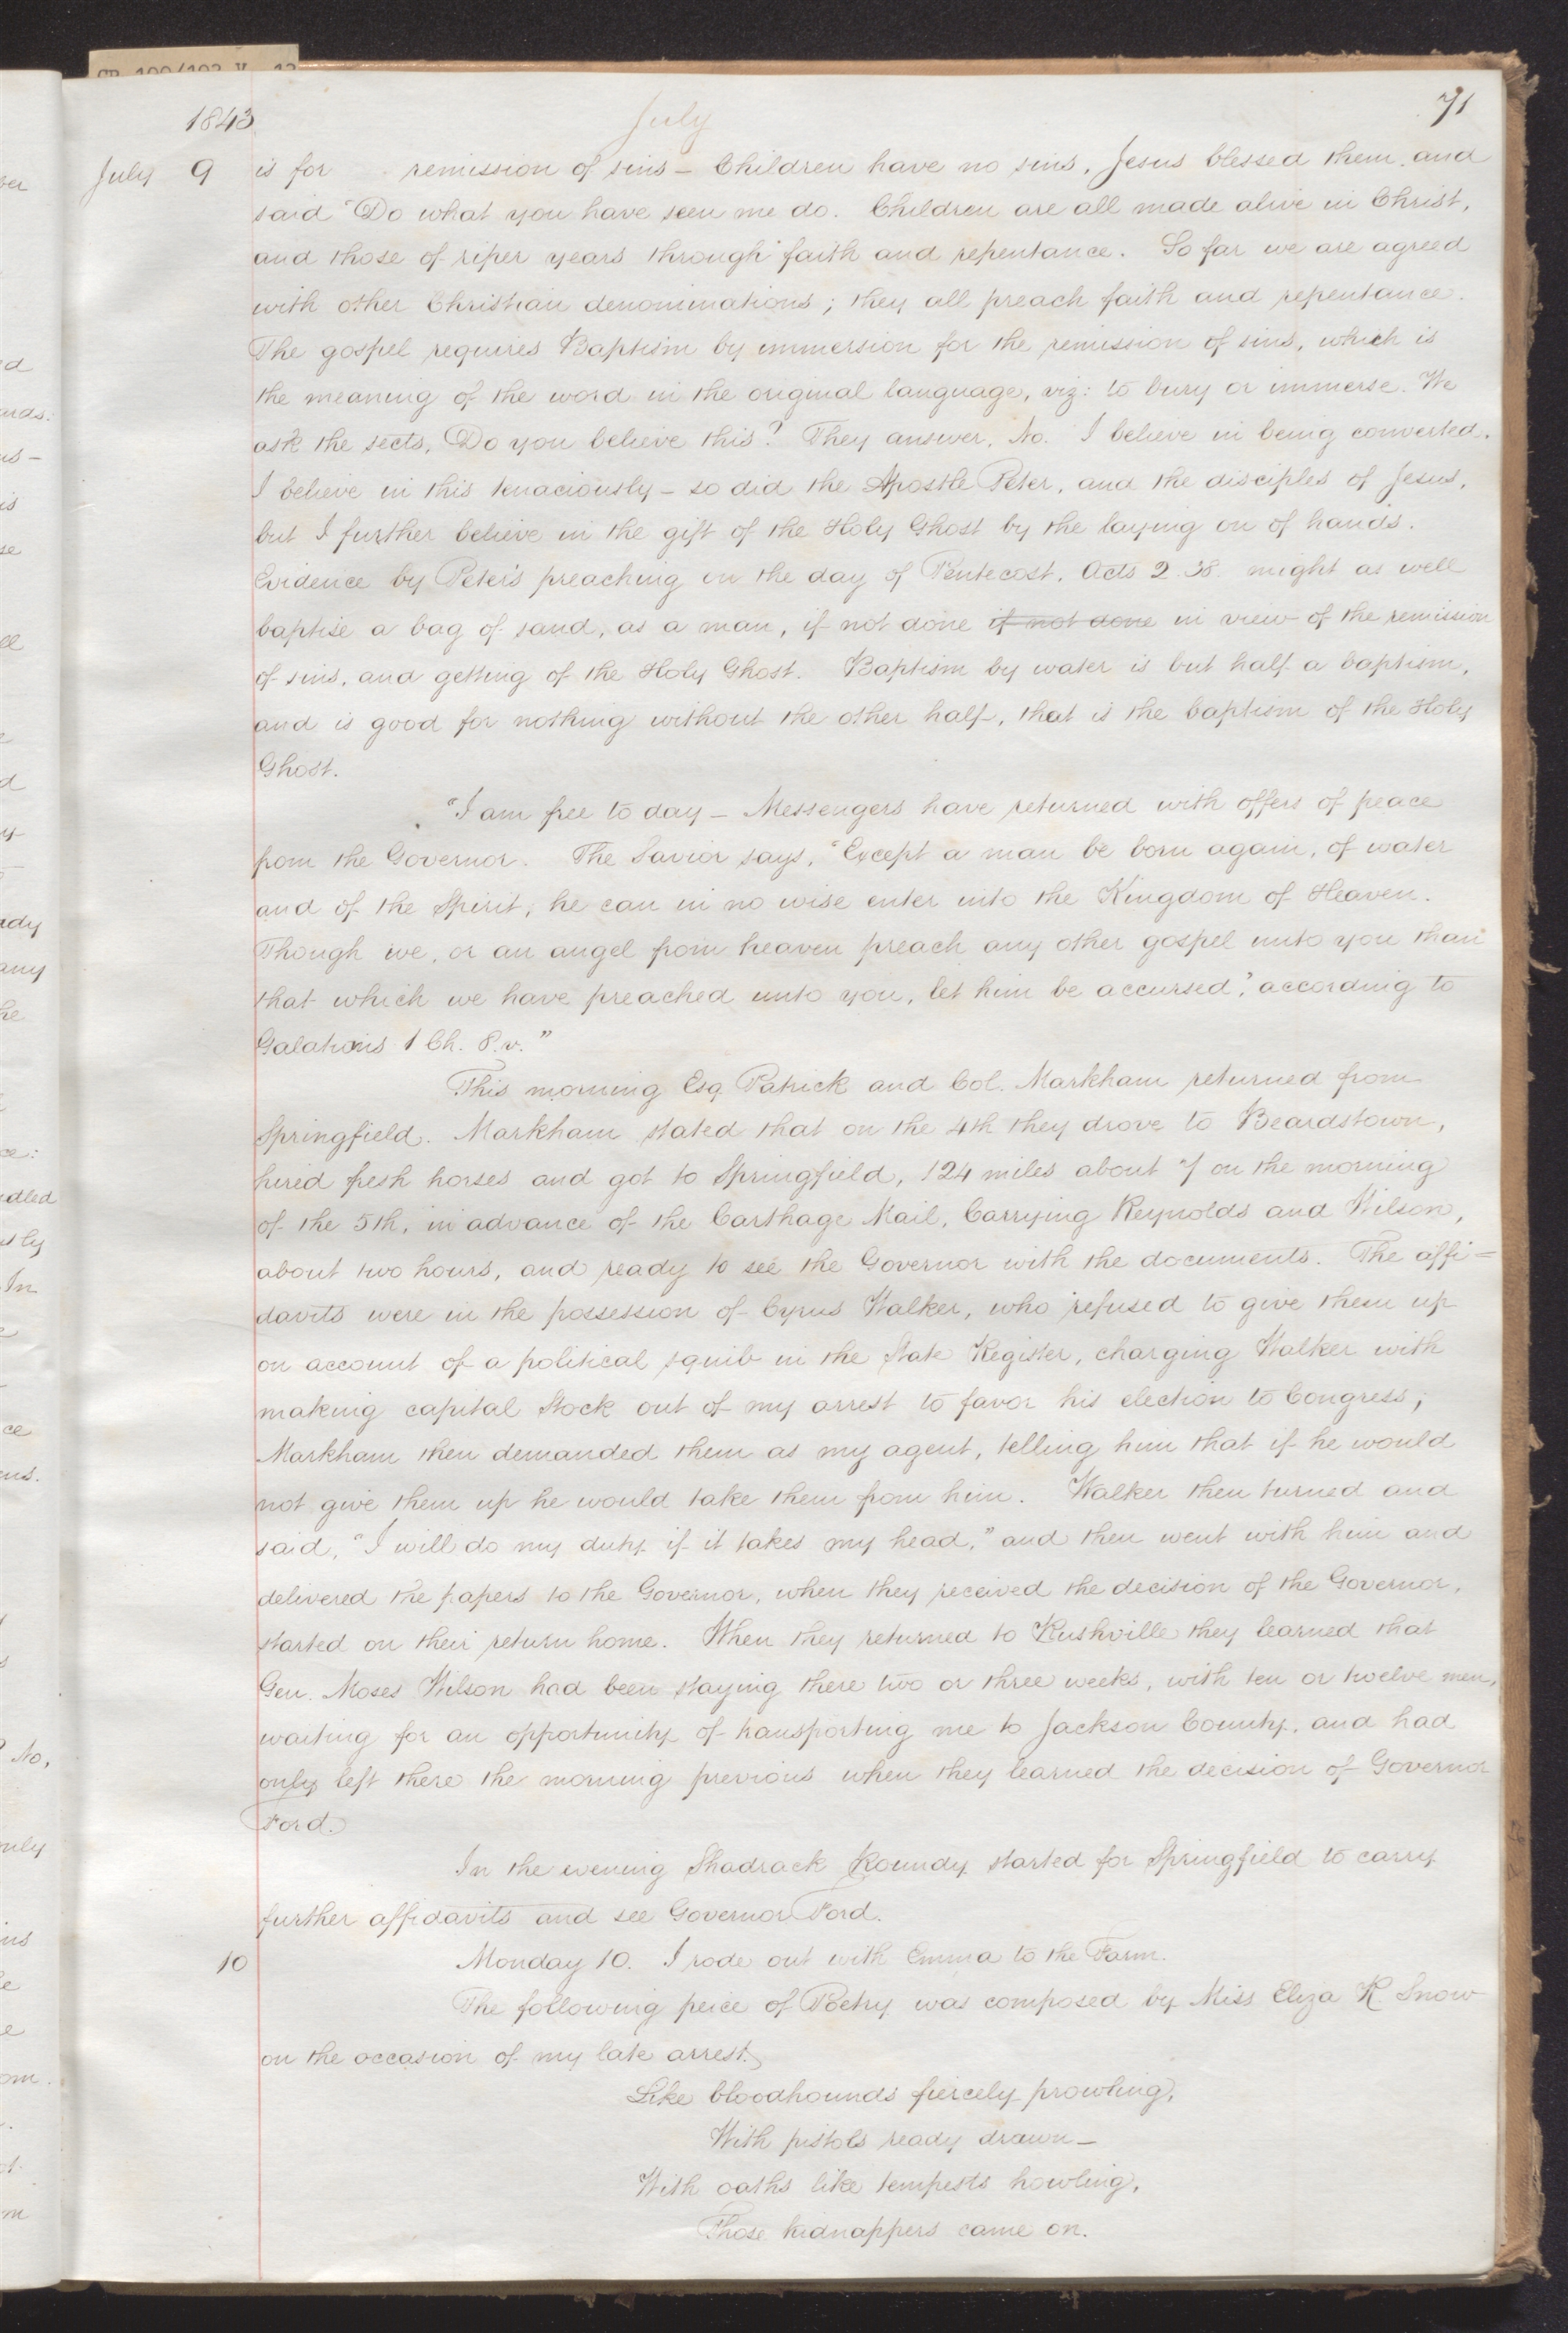 1843 July 71
July 9 is for remission of sins – Children have no sins, Jesus blessed them and
said "Do what you have seen me do. Children are all made alive in Christ,
and those of riper years through faith and repentance. So far we are agreed
with other Christian denominations; they all preach faith and repentance.
The gospel requires Baptism by immersion for the remission of sins, which is
the meaning of the word in the original language, viz: to bury or immerse. We
ask the sects, Do you believe this? They answer, No. I believe in being converted.
I believe in this tenaciously – so did the Apostle Peter, and the disciples of Jesus,
but I further believe in the gift of the Holy Ghost by the laying on of hands.
Evidence by Peter's preaching on the day of Pentecost, Acts 2. 38. might as well
baptise a bag of sand, as a man, if not done if not done in view of the remission
of sins, and getting of the Holy Ghost. Baptism by water is but half a baptism,
and is good for nothing without the other half, that is the baptism of the Holy
Ghost.
"I am free to day – Messengers have returned with offers of peace
from the Governor. The Savior says, "Except a man be born again, of water
and of the Spirit, he can in no wise enter into the Kingdom of Heaven.
Though we, or an angel from heaven preach any other gospel unto you than
that which we have preached unto you, let him be accursed," according to
Galations 1 Ch. 8. v."
This morning Esq Patrick and Col. Markham returned from
Springfield. Markham stated that on the 4th they drove to Beardstown,
hired fresh horses and got to Springfield, 124 miles about 7 on the morning
of the 5th, in advance of the Carthage Mail, Carrying Reynolds and Wilson,
about two hours, and ready to see the Governor with the documents. The affi=
davits were in the possession of Cyrus Walker, who refused to give them up
on account of a political squib in the State Register, charging Walker with
making capital Stock out of my arrest to favor his election to Congress;
Markham then demanded them as my agent, telling him that if he would
not give them up he would take them from him. Walker then turned and
said, "I will do my duty if it takes my head," and then went with him and
delivered the papers to the Governor, when they received the decision of the Governor,
started on their return home. When they returned to Rushville they learned that
Gen. Moses Wilson had been staying there two or three weeks, with ten or twelve men,
waiting for an opportunity of transporting me to Jackson County, and had
only left there the morning previous when they learned the decision of Governor
Ford.
In the evening Shadrack Roundy started for Springfield to carry
further affidavits and see Governor Ford.
10 Monday 10. I rode out with Emma to the Farm.
The following peice of Poetry was composed by Miss Eliza R Snow
on the occasion of my late arrest.
Like bloodhounds fiercely prowling,
With pistols ready drawn –
With oaths like tempests howling,
Those kidnappers came on.